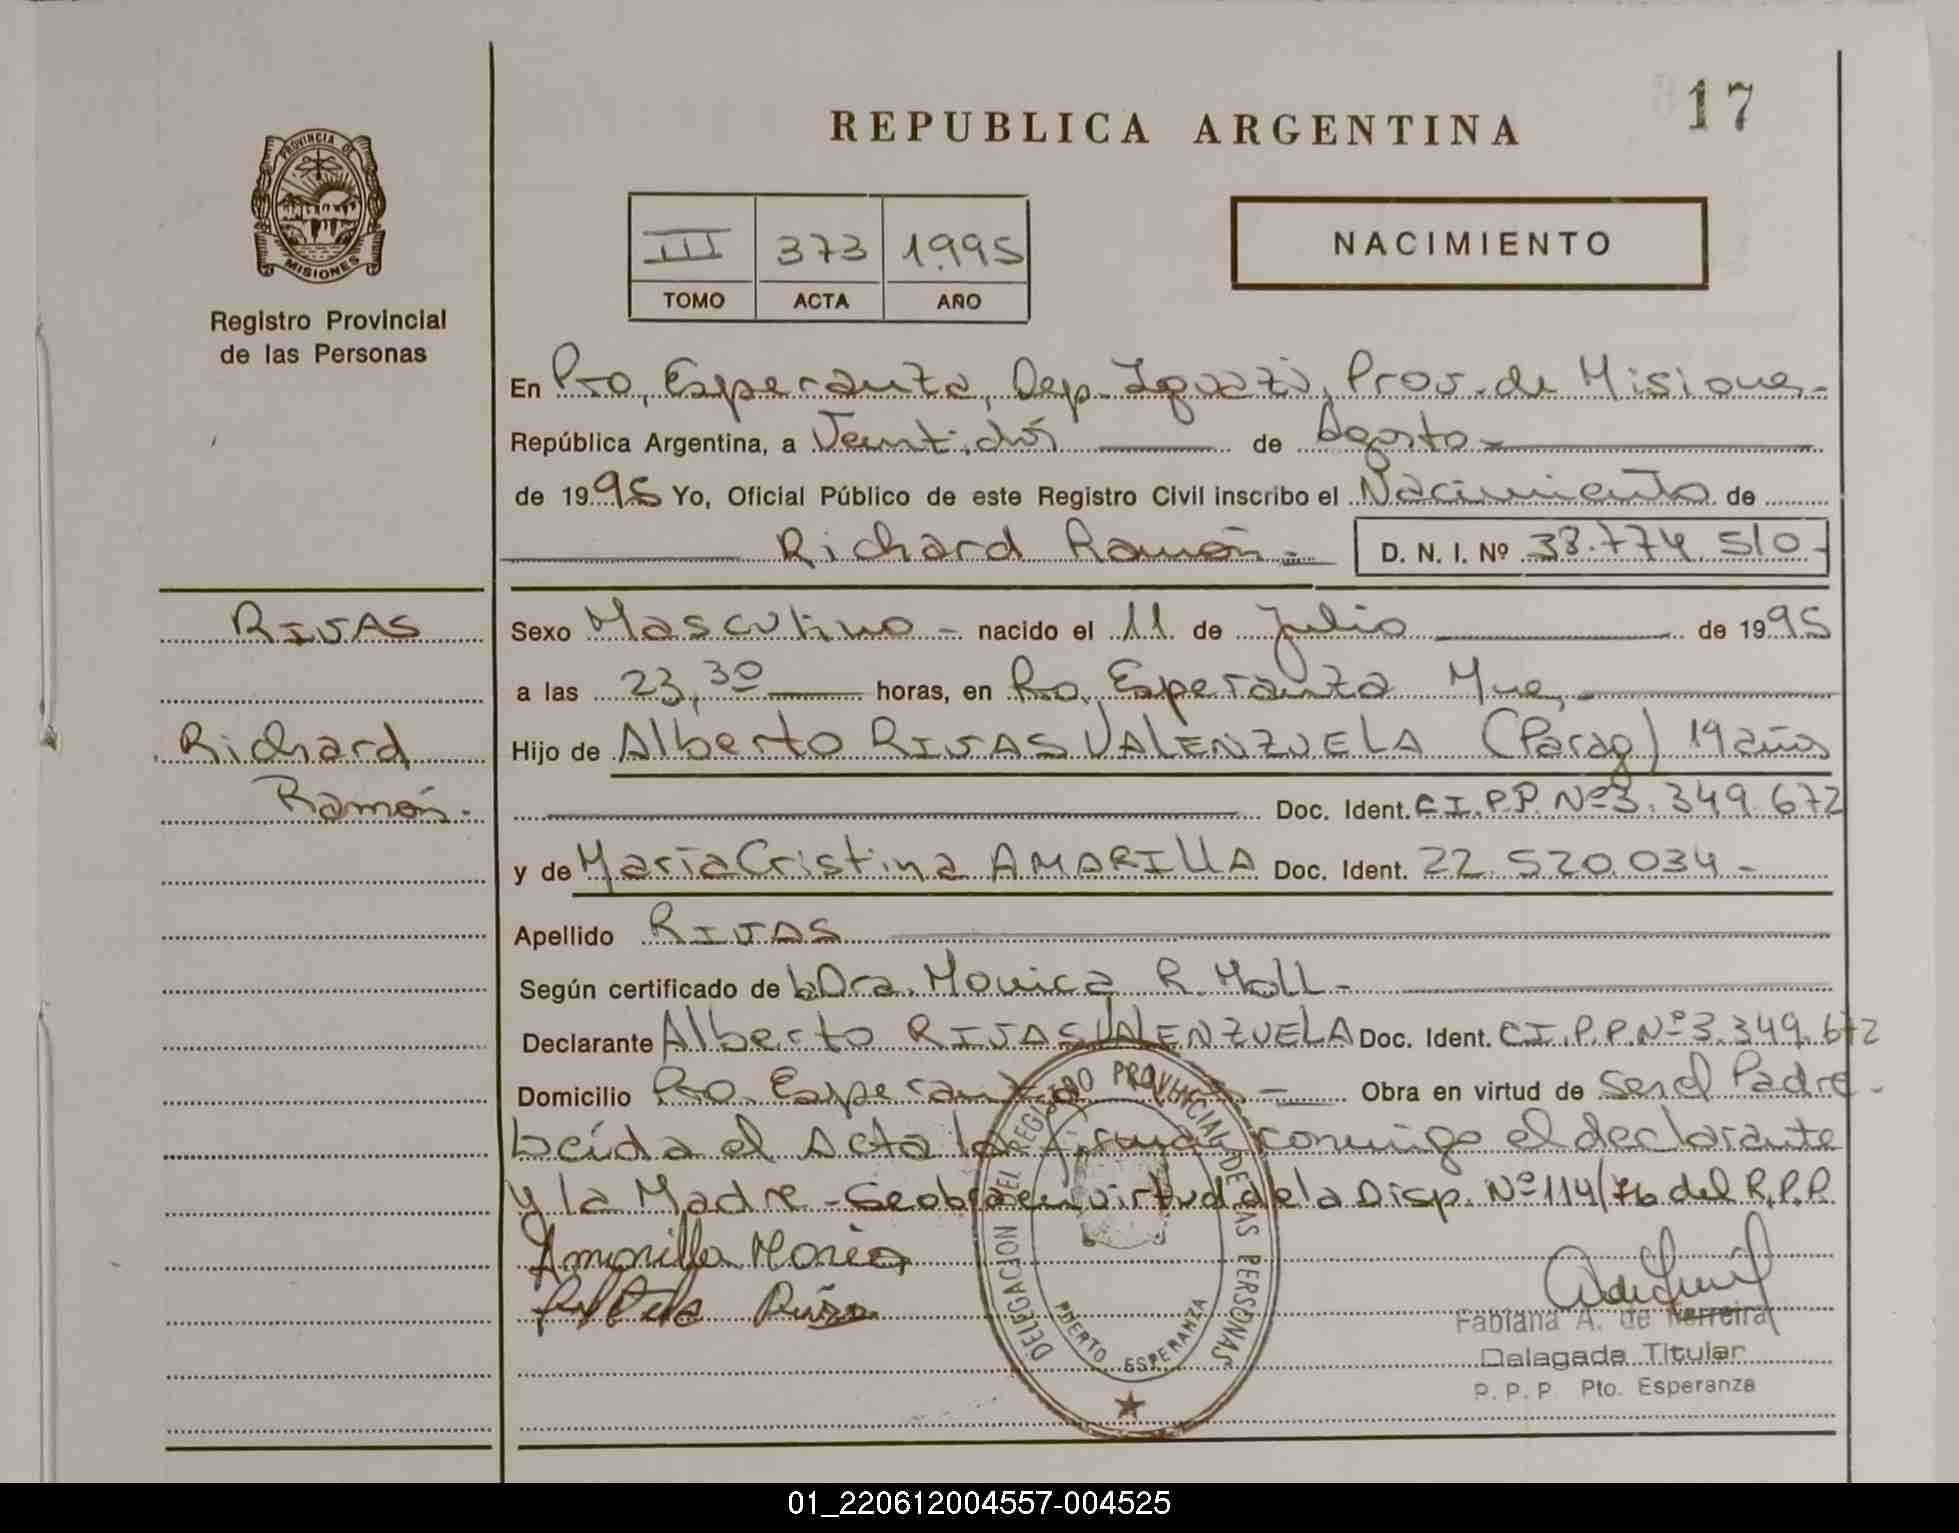 17
REPUBLICA ARGENTINA
PROVINCIA DE
MISIONES
Registro Provincial
de las Personas
III 373 1995
TOMO ACTA AÑO
NACIMIENTO
En Pto, Esperanza, Dep. Iguazú, Prov. de Misiones-
República Argentina, a Veintidós de Agosto-
de 1995 Yo, Oficial Público de este Registro Civil inscribo el Nacimiento de
Richard Ramón- D. N. I. Nº 38.774.510-
RIVAS
Richard
Ramón.
Sexo Masculino - nacido el 11 de Julio de 1995
a las 23,30 horas, en Pto. Esperanza Mnes,-
Hijo de Alberto RIVAS VALENZUELA (Parag) 19 años
Doc. Ident. C.I.P.P. Nº 3.349.672
y de María Cristina AMARILLA Doc. Ident. 22.520.034-
Apellido RIVAS
Según certificado de la Dra. Monica R. Moll-
Declarante Alberto RIVAS VALENZUELA Doc. Ident. C.I.P.P. Nº 3.349.672
Domicilio Pto. Esperanza - Obra en virtud de ser el Padre-
Leída el Acta la firman conmigo el declarante
y la Madre - Se obra en virtud de la Disp. Nº 114/76 del R.P.P.
Amarilla Maria
DELEGACION DEL REGISTRO PROVINCIAL DE LAS PERSONAS
PUERTO ESPERANZA
Fabiana A. de Ferreira
Delagada Titular
P. P. P. Pto. Esperanza
01_220612004557-004525